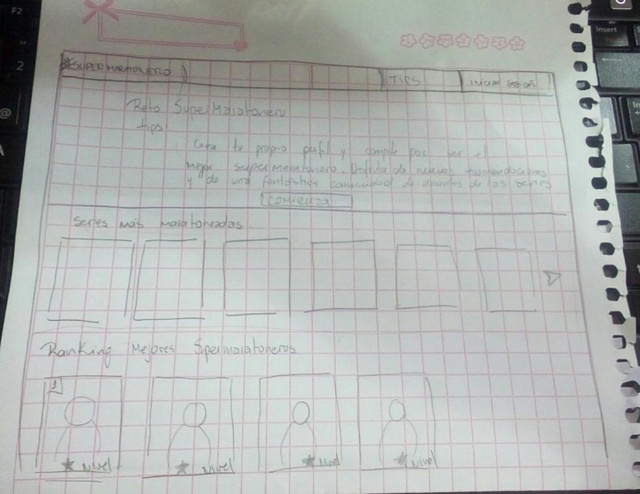 #SUPERMARATONERO
TIPS
Iniciar sesión
Reto SuperMaratonero
tipo
Crea tu propio perfil y compite por ser el
mejor supermaratonero. Disfruta de nuevas recomendaciones
y de una fantástica comunidad de amantes de las series
COMIENZA
Series más maratoneadas
Ranking Mejores Supermaratoneros
1
Nivel
Nivel
Nivel
Nivel
F2
2
@
A
Insert